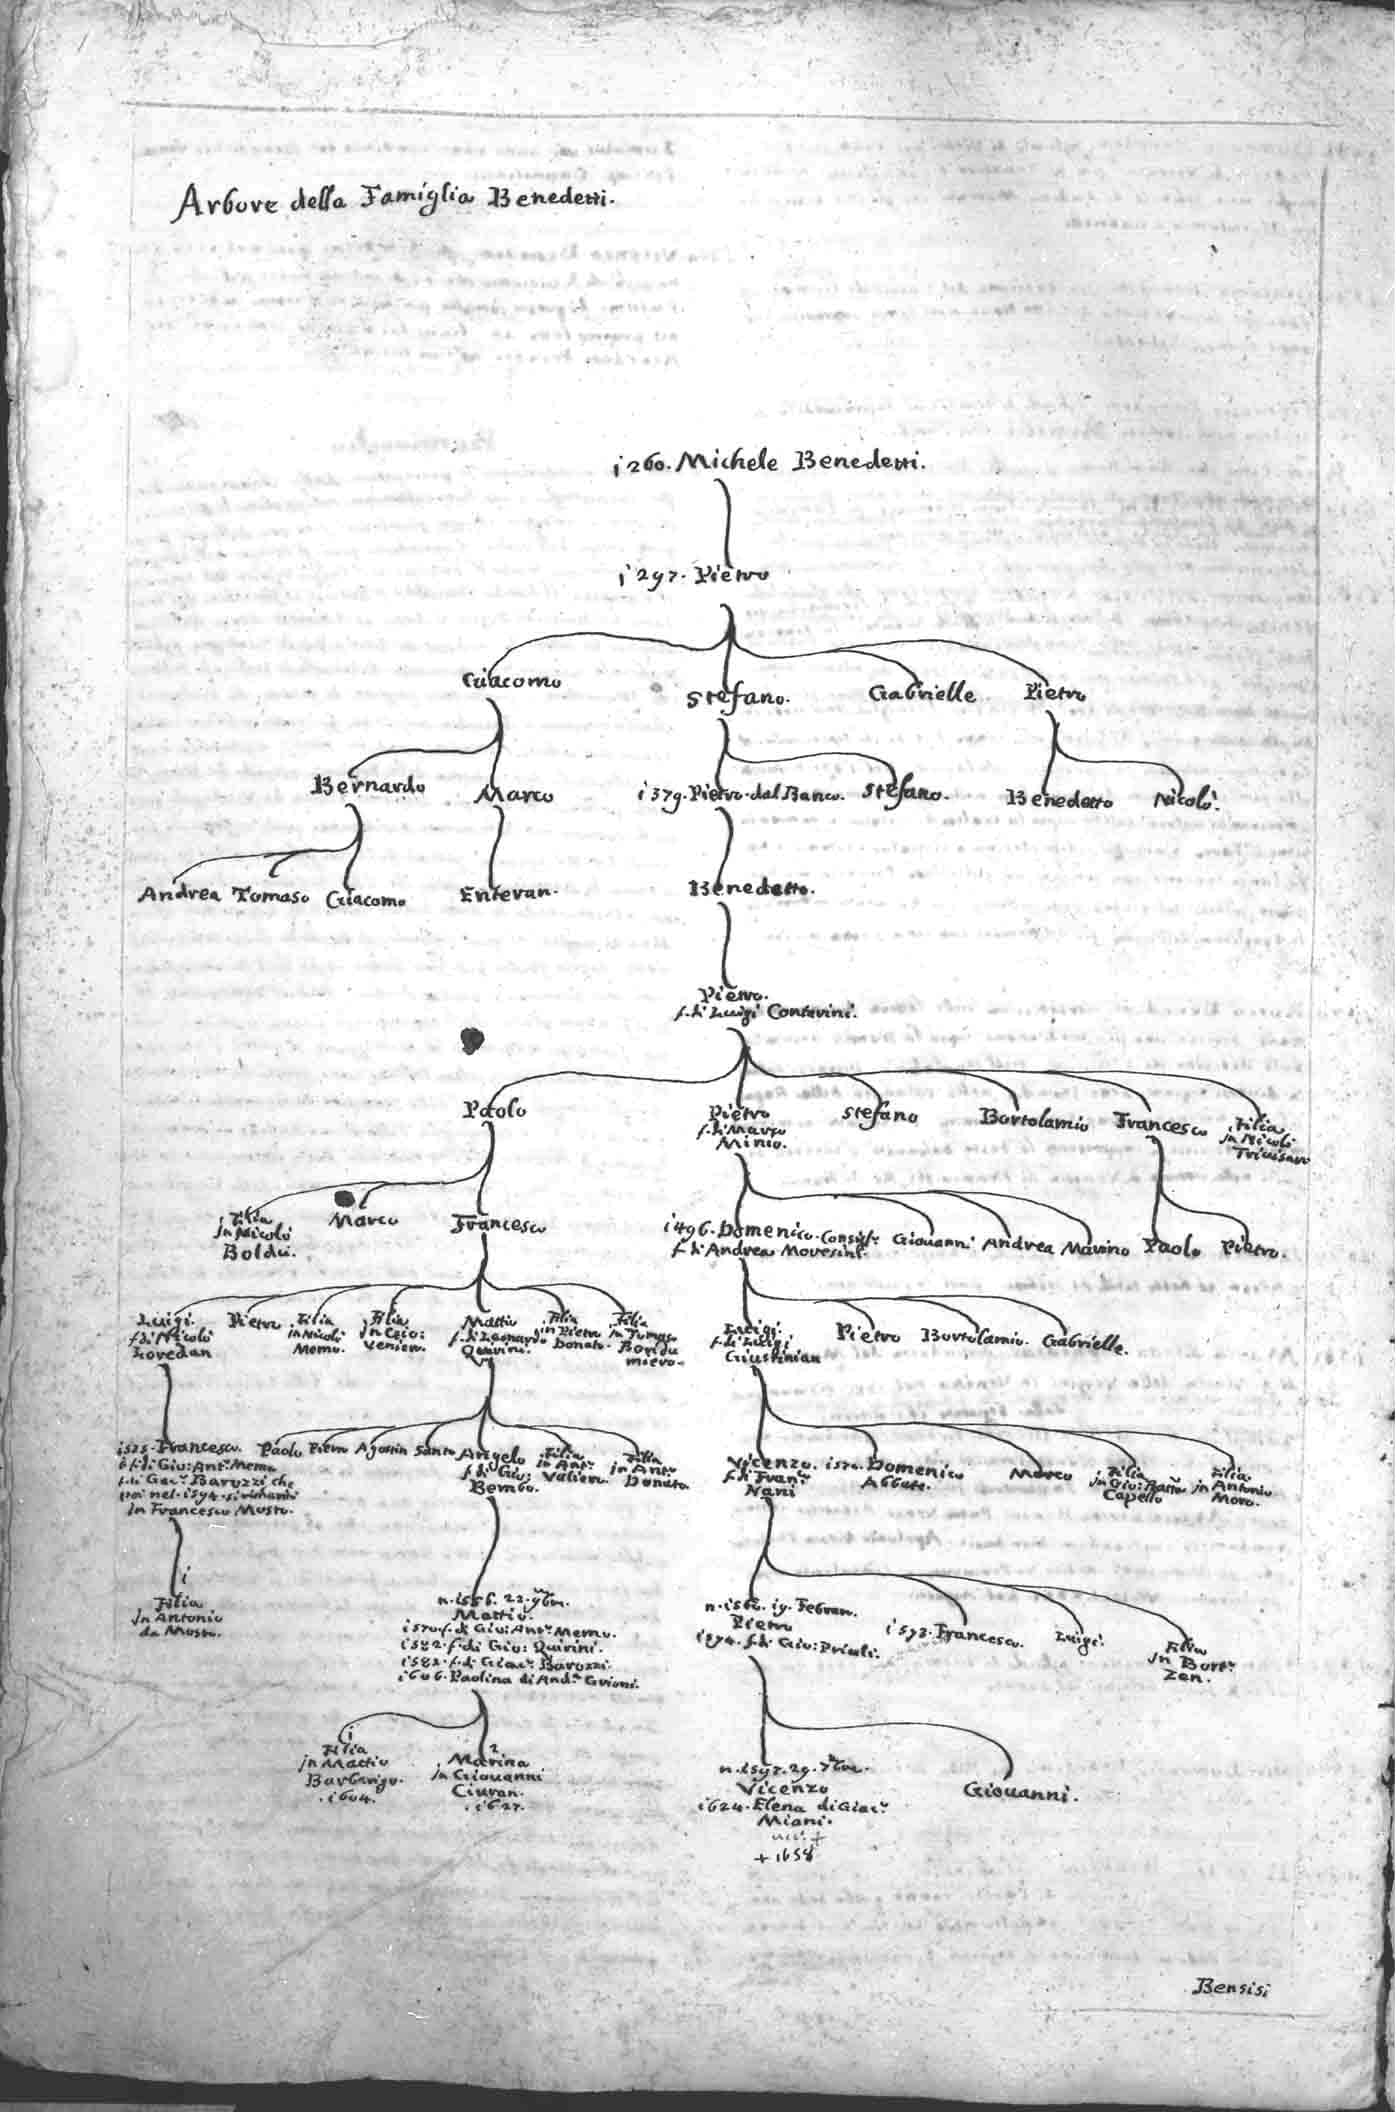 Arbore della Famiglia Benedetti.
1260. Michele Benedetti.
1297. Pietro
Giacomo
Stefano.
Gabrielle
Pietro
Bernardo
Marco
1379. Pietro dal Banco.
Stefano.
Benedetto
Nicolò.
Andrea
Tomaso
Giacomo
Enteran.
Benedetto.
Pietro.
f. di Luigi Contarini.
Paolo
Pietro
f. di Marco
Minio.
Stefano
Bortolamio
Francesco
Filia
in Nicolò
Trivisan
Filia
in Nicolò
Boldù.
Marco
Francesco
1496. Domenico Consigr.
f. di Andrea Moresini.
Giovanni
Andrea
Marino
Paolo
Pietro.
Luigi.
f. di Nicolò
Loredan
Pietro
Filia
in Nicolò
Memo.
Filia
Venier.
Mattio
f. di Leonardo
Querini.
Filia
in Pietro
Donato.
Filia
in Tomaso
Bondu
miero.
Luigi.
f. di Luigi
Giustinian
Pietro
Bortolamio.
Gabrielle.
1525. Francesco.
f. di Gio: Antº Memo
f. di Giacº Barozzi che
poi nel 1594. si richarità
in Francesco Mosto.
Paolo
Pietro
Agostin
Santo
Angelo
f. di Gio:
Bembo.
Filia
in Antº
Valier.
Filia
in Antº
Donato.
Vicenzo.
f. di Francº
Nani
Domenico
Abbate.
Marco
Filia
in Gio: Batta
Capello
Filia
in Antonio
Moro.
1
Filia
in Antonio
da Mosto.
n. 1556. 22. 9bre.
Mattio.
1570. f. di Gio: Antº Memo.
1582. f. di Gio: Quirini.
1582. f. di Giacº Barozzi.
1606. Paolina di Andª Grioni.
n. 1562. 19. Febraro.
Pietro
1594. f. di Gio: Priuli.
1573. Francesco.
Luigi.
Filia
in Bortº
Zen.
1
Filia
in Mattio
Barbarigo.
1604.
2
Marina
in Giovanni
Civran.
1627.
n. 1597. 29. 7bre.
Vicenzo
1624. Elena di Giacº
Miani.
+ 1658
Giovanni.
Bensisi